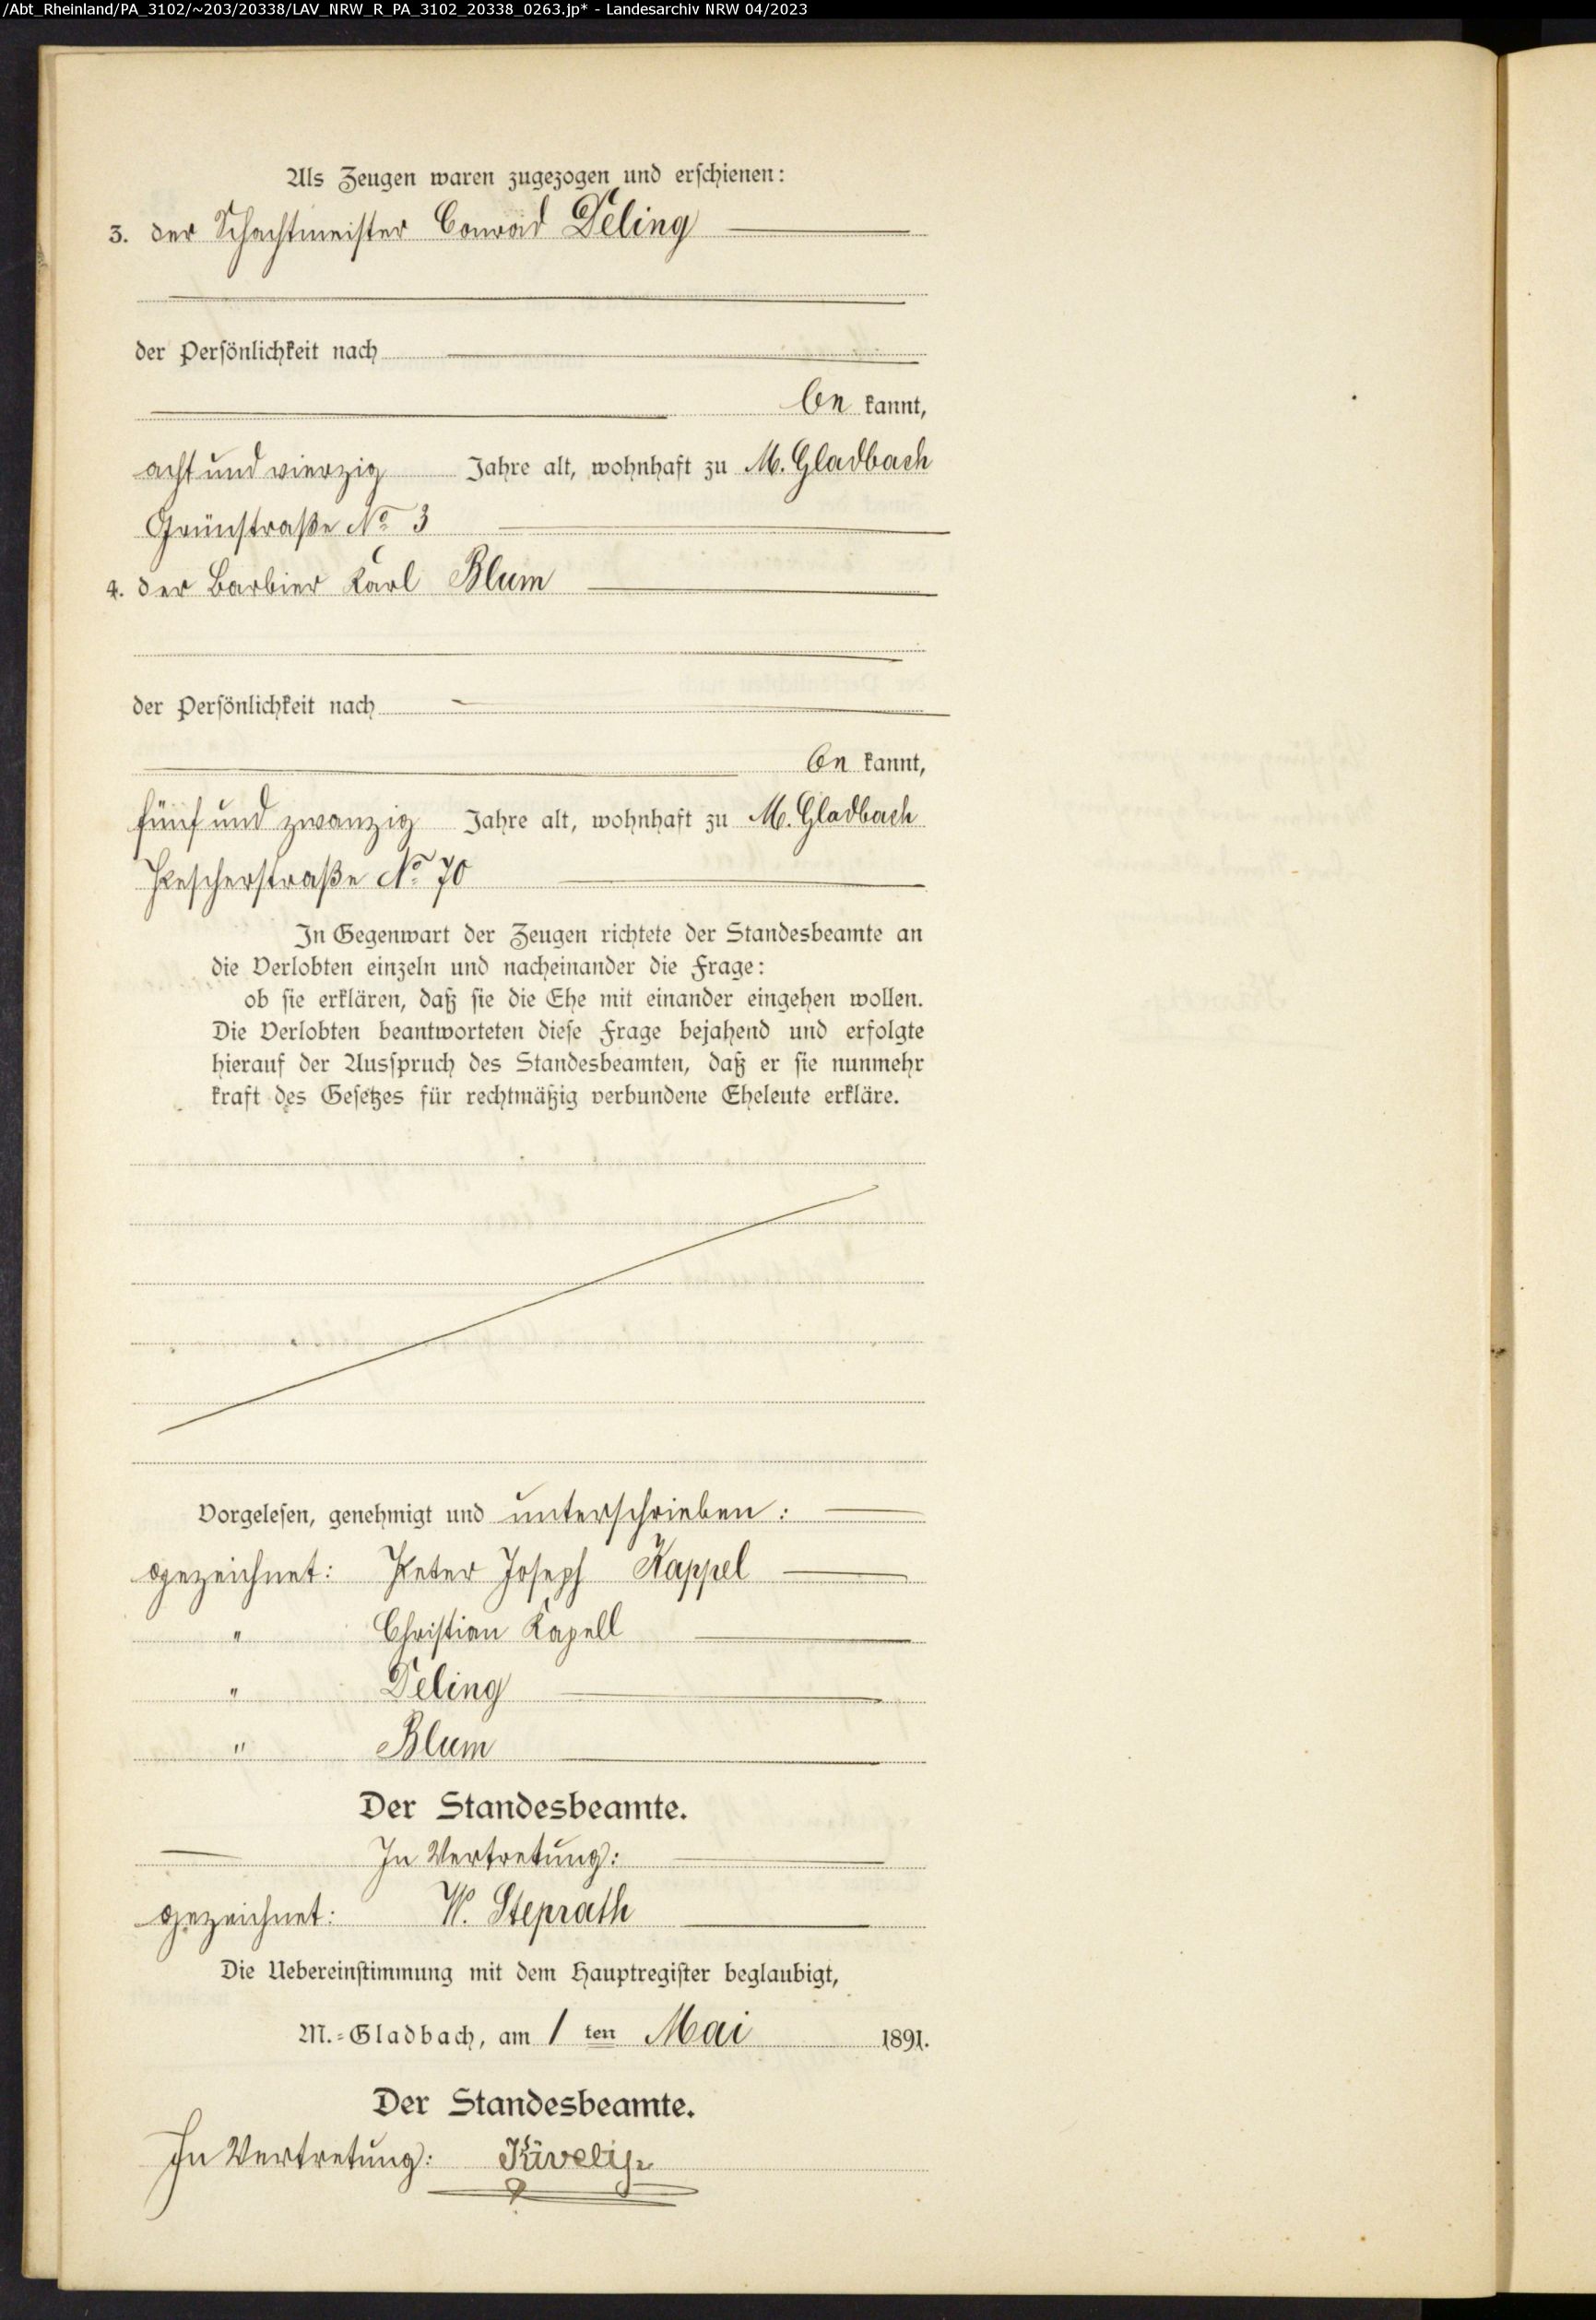 /Abt_Rheinland/PA_3102/~203/20338/LAV_NRW_R_PA_3102_20338_0263.jp* - Landesarchiv NRW 04/2023
Als Zeugen waren zugezogen und erschienen:
3. der Schachtmeister Conrad Deling
der Persönlichkeit nach
be kannt,
acht und vierzig Jahre alt, wohnhaft zu M. Gladbach
Grünstraße No 3
4. der Barbier Karl Blum
der Persönlichkeit nach
be kannt,
fünf und zwanzig Jahre alt, wohnhaft zu M. Gladbach
Pescherstraße No 70
In Gegenwart der Zeugen richtete der Standesbeamte an
die Verlobten einzeln und nacheinander die Frage:
ob sie erklären, daß sie die Ehe mit einander eingehen wollen.
Die Verlobten beantworteten diese Frage bejahend und erfolgte
hierauf der Ausspruch des Standesbeamten, daß er sie nunmehr
kraft des Gesetzes für rechtmäßig verbundene Eheleute erkläre.
Vorgelesen, genehmigt und unterschrieben:
gezeichnet: Peter Joseph Kappel
" Christian Kapell
" Deling
" Blum
Der Standesbeamte.
In Vertretung:
gezeichnet: W. Steprath
Die Uebereinstimmung mit dem Hauptregister beglaubigt,
M.-Gladbach, am 1 ten Mai 1891.
Der Standesbeamte.
In Vertretung: